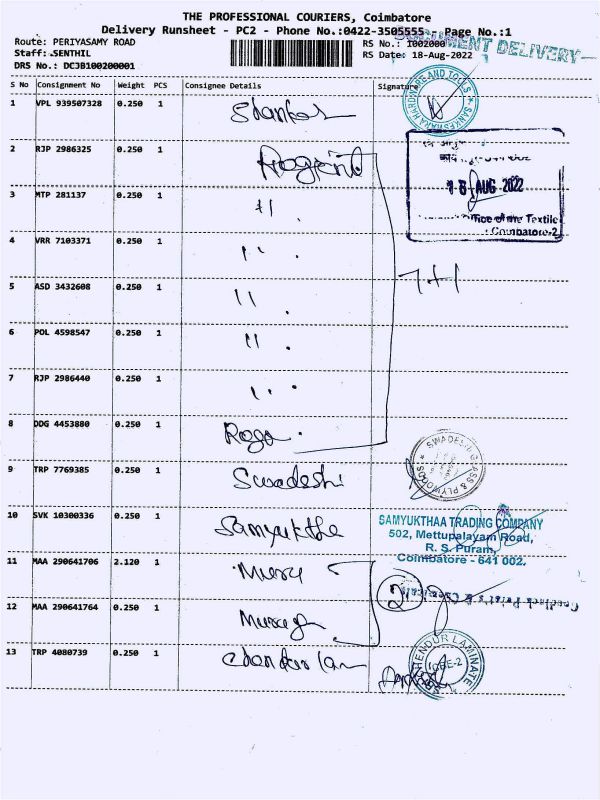 THE PROFESSIONAL COURIERS, Coimbatore
Delivery Runsheet - PC2 - Phone No.:0422-3505555 - Page No.:1
Route: PERIYASAMY ROAD
RS No.: I002000
DOCUMENT DELIVERY
Staff: SENTHIL
RS Date: 18-Aug-2022
DRS No.: DCJB100200001
S No Consignment No Weight PCS Consignee Details Signature
1 VPL 939507328 0.250 1
SANKESHWAR HARDWARE AND TOOLS
2 RJP 2986325 0.250 1
18 AUG 2022
3 MTP 281137 0.250 1 "
Office of the Textile
Coimbatore-2
4 VRR 7103371 0.250 1 "
7+1
5 ASD 3432608 0.250 1 "
6 POL 4598547 0.250 1 "
7 RJP 2986440 0.250 1 "
8 DDG 4453880 0.250 1
9 TRP 7769385 0.250 1 Swadeshi
SWADESHI GLASS & PLYWOODS
10 SVK 10300336 0.250 1 Samyuktha
SAMYUKTHAA TRADING COMPANY
502, Mettupalayam Road,
R. S. Puram,
Coimbatore - 641 002.
11 MAA 290641706 2.120 1
2
12 MAA 290641764 0.250 1
13 TRP 4080739 0.250 1
CBE-2